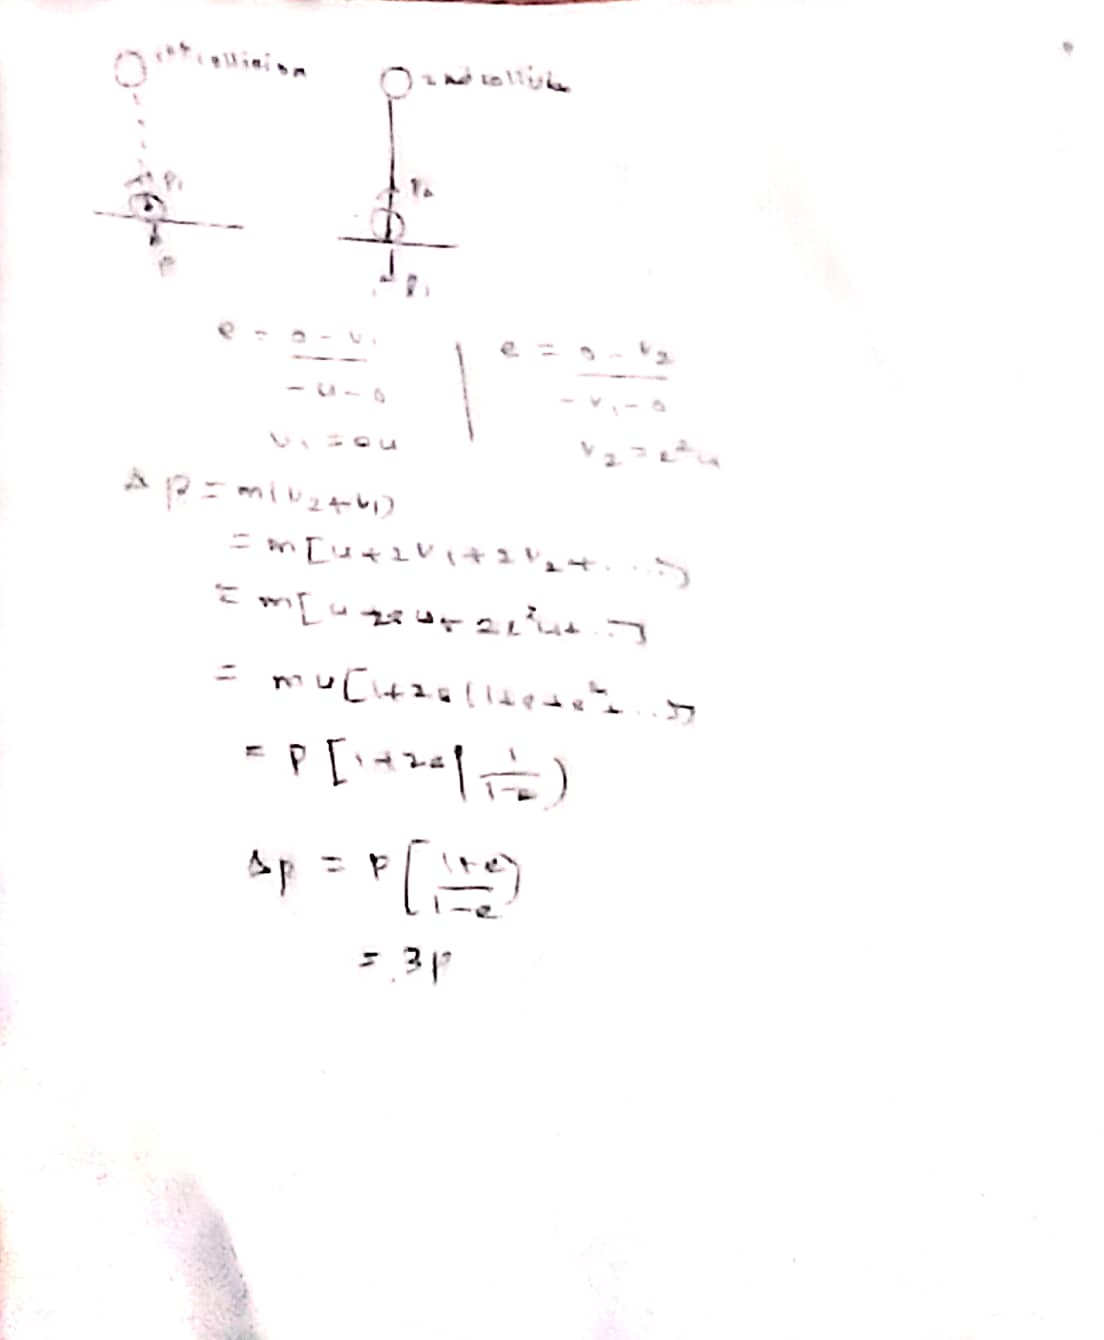 1st collision
2nd collision
P₁
P₂
P
P₁
e = 0 - v₁ / -u - 0
e = 0 - v₂ / -v₁ - 0
v₁ = eu
v₂ = e²u
Δp = m(v₂+v₁)
= m[u+2v₁+2v₂+....]
= m[u+2eu+2e²u+...]
= mu[1+2e(1+e+e²+...)]
= P[1+2e(1/1-e)
Δp = P[1+e/1-e)
= 3p